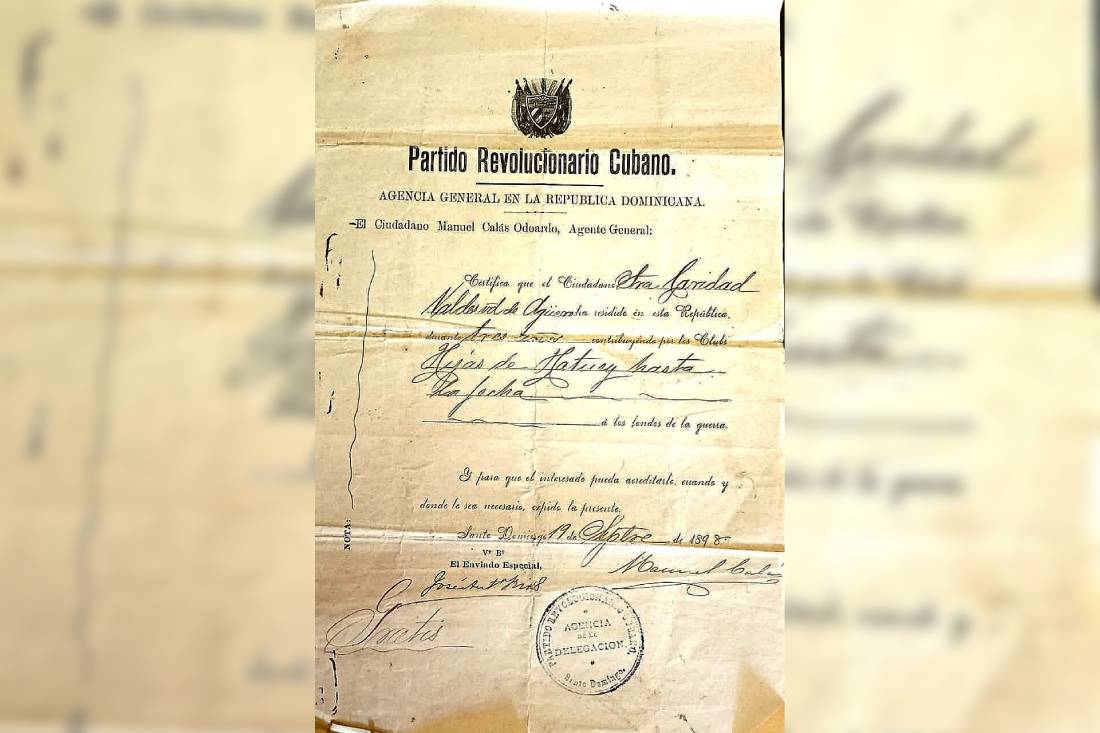 Partido Revolucionario Cubano.
AGENCIA GENERAL EN LA REPUBLICA DOMINICANA.
El Ciudadano Manuel Calás Odoardo, Agente General:
Certifica que el Ciudadano Sra Caridad
Valdes de Agüero ha residido en esta República,
durante tres años contribuyendo por los Clubs
Hijas de Hatuey hasta
La fecha
á los fondos de la guerra.
Y para que el interesado pueda acreditarlo, cuando y
donde le sea necesario, expido la presente,
Santo Domingo 19 de Septre de 1898
NOTA:
Vº Bº
El Enviado Especial,
Manuel Calás
Gratis
PARTIDO REVOLUCIONARIO CUBANO,
AGENCIA
DE LA
DELEGACION.
Santo Domingo.